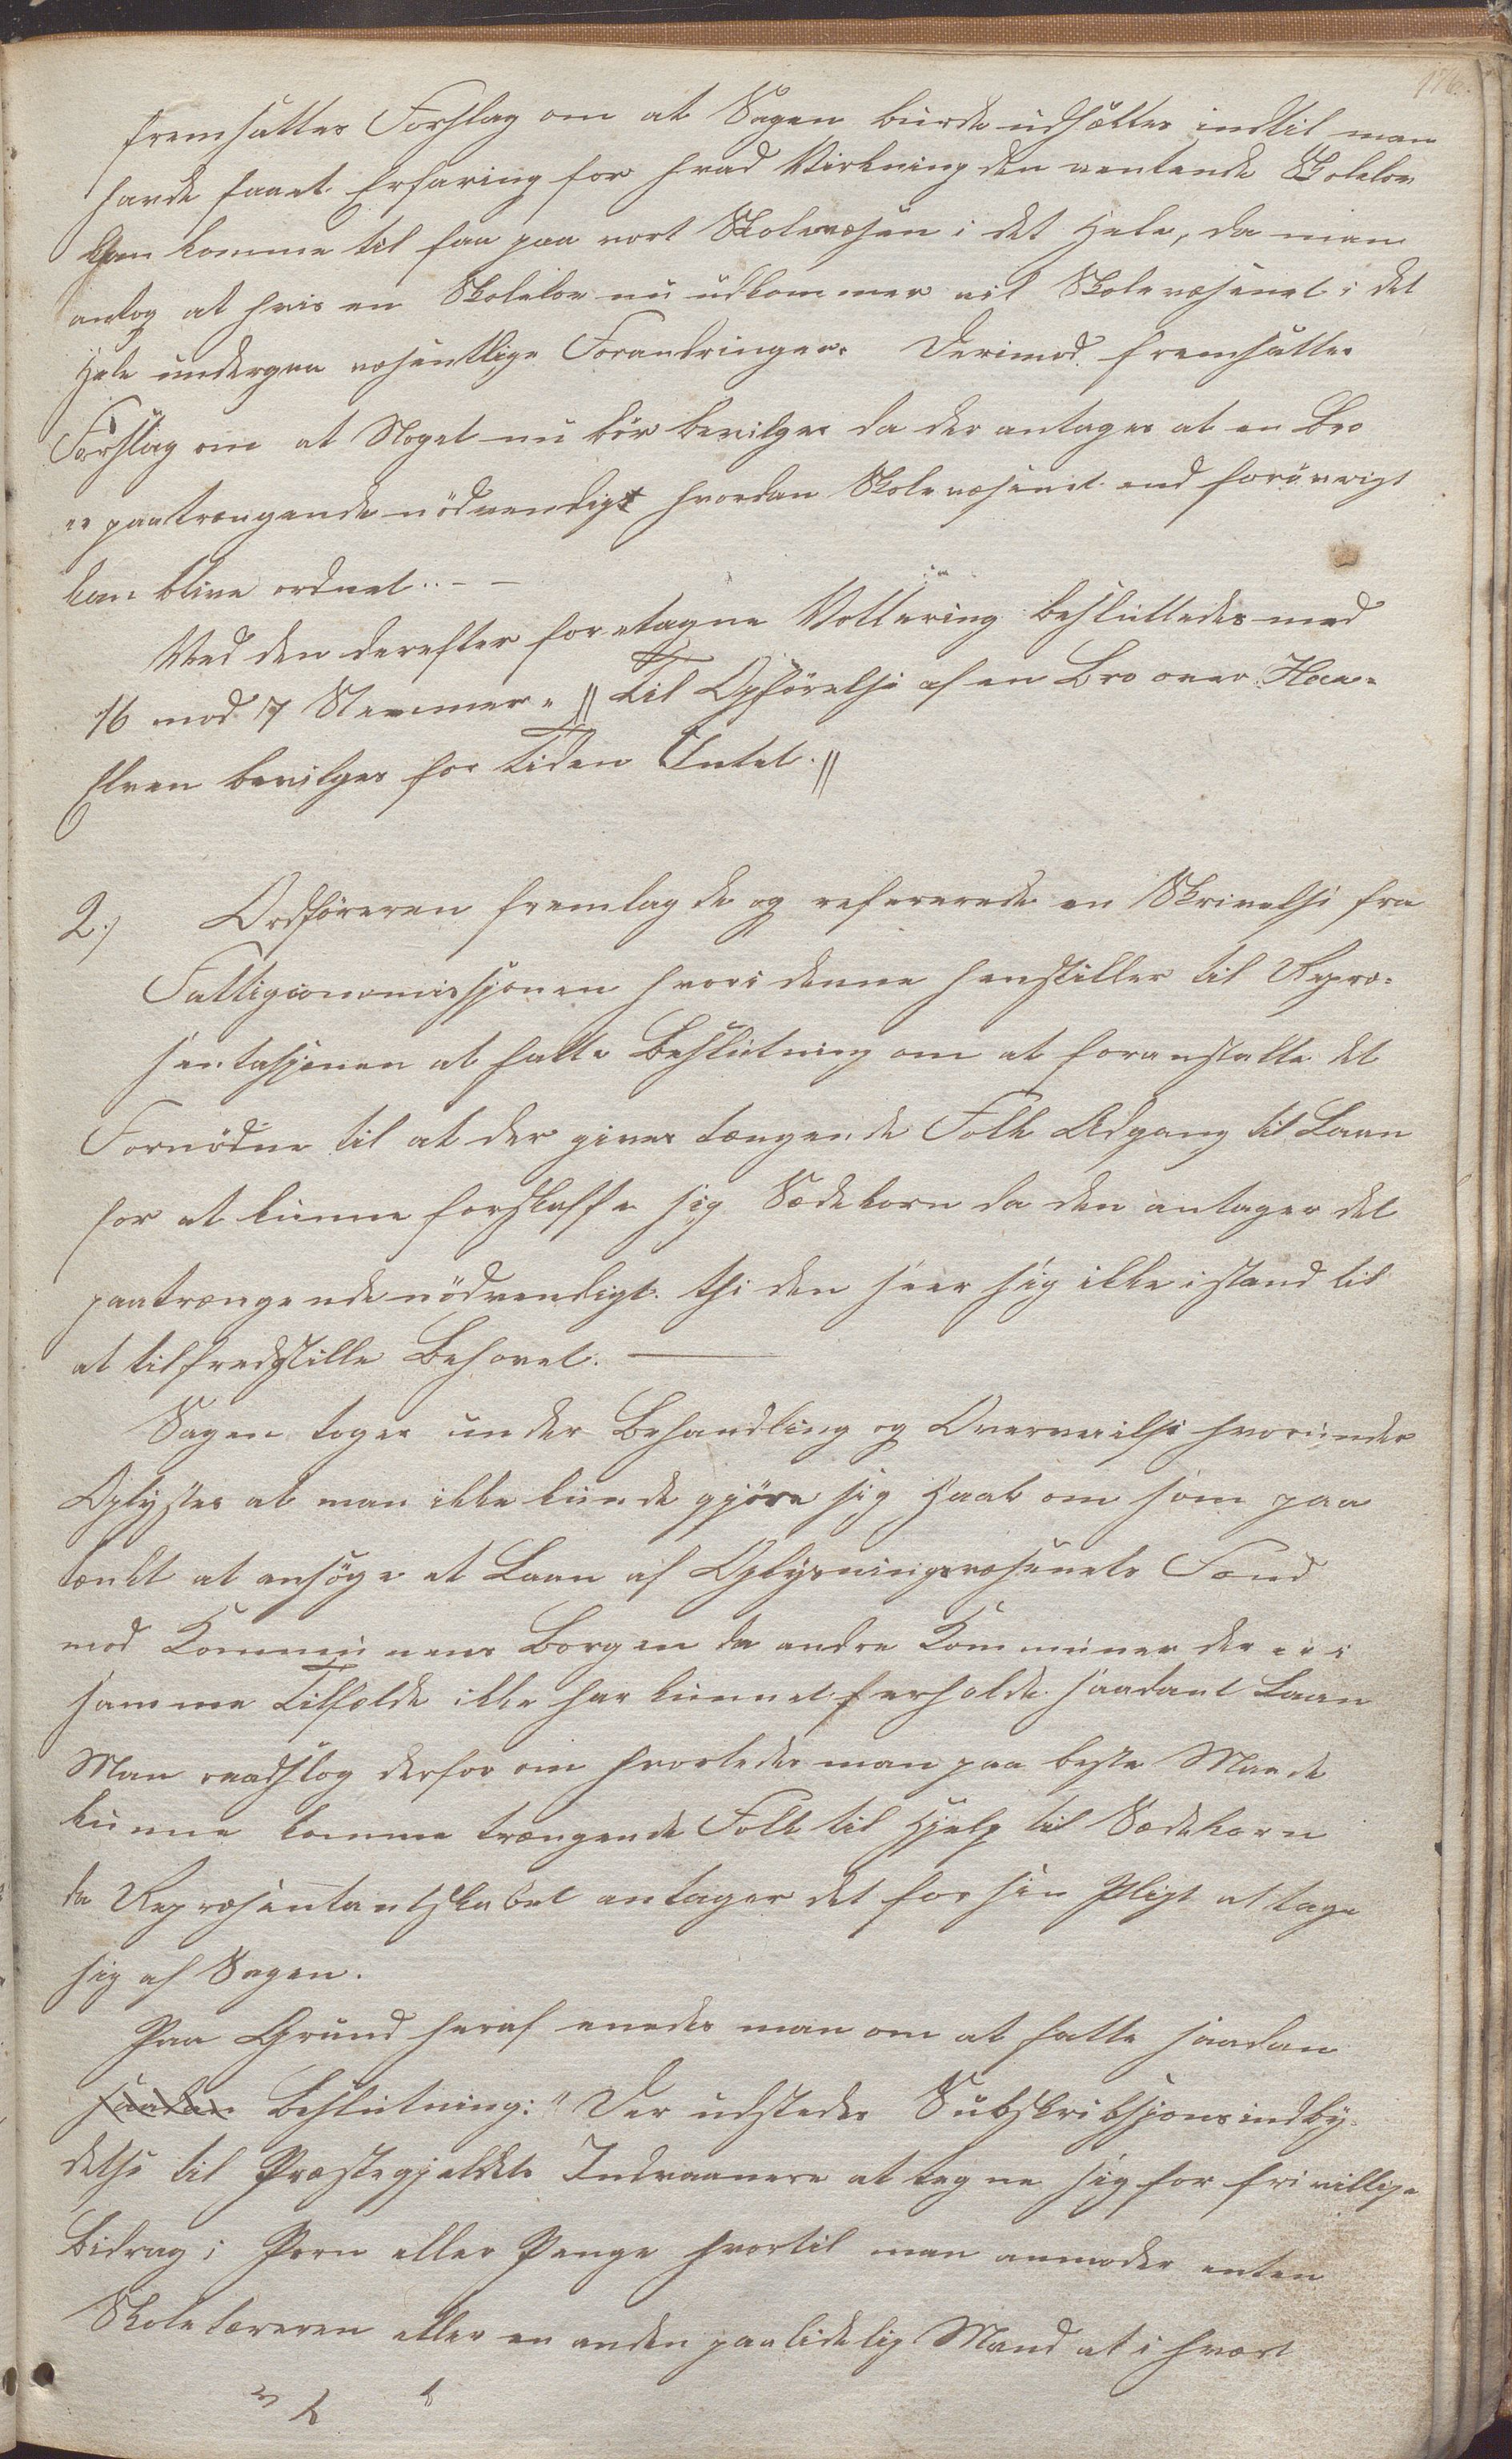 176.
fremsattes Forslag om at Sagen burde udsættes indtil man
havde faaet Erfaring for hvad Virkning den ventende Skolelov
kan komme til faa paa vort Skolevæsen i det Hele, da man
antog at hvis en Skolelov nu udkommer vil Skolevæsenet i det
Hele undergaa væsentlige Forandringer. Derimod fremsattes
Forslag om at Noget nu bör bevilges da der antages at en Bro
er paatrængende nödvendigt hvordan Skolevæsenet end forövrigt
kan blive ordnet. — —
Ved den derefter foretagne Vottering besluttedes med
16 mod 7 Stemmer. "Til Opförelse af en Bro over Haa-
Elven bevilges for Tiden Intet."
2.) Ordföreren fremlagde og refererede en Skrivelse fra
Fattigcommissjonen hvori denne henstiller til Repræ-
sentasjonen at fatte Beslutning om at foranstalte det
Fornödne til at der gives tængende Folk Adgang til Laan
for at kunne forskaffe sig Sædekorn da den antager det
paatrængende nödvendigt. thi den seer sig ikke istand til
at tilfredstille Behovet. —
Sagen toges under Behandling og Overveielse hvorunder
Oplystes at man ikke kunde gjöre sig Haab om som paa
tænkt at ansöge et Laan af Oplysningsvæsenets Fond
mod Kommunens Borgen da andre Kommuner der er i
samme Tilfælde ikke har kunnet erholde saadant Laan
Man raadslog derfor om hvorledes man paa beste Maade
kunne komme trængende Folk til Hjelp til Sædekorn
da Repræsentantskabet antager det for sin Pligt at tage
sig af Sagen.
Paa Grund heraf enedes man om at fatte saadan
saadan Beslutning: "Der udstedes Subskribsjonsindby-
delse til Præstegjeldets Indvaanere at tegne sig for frivillige
Bidrag i Korn eller Penge hvortil man anmoder enten
Skolelæreren eller en anden paalidelig Mand at i hvert